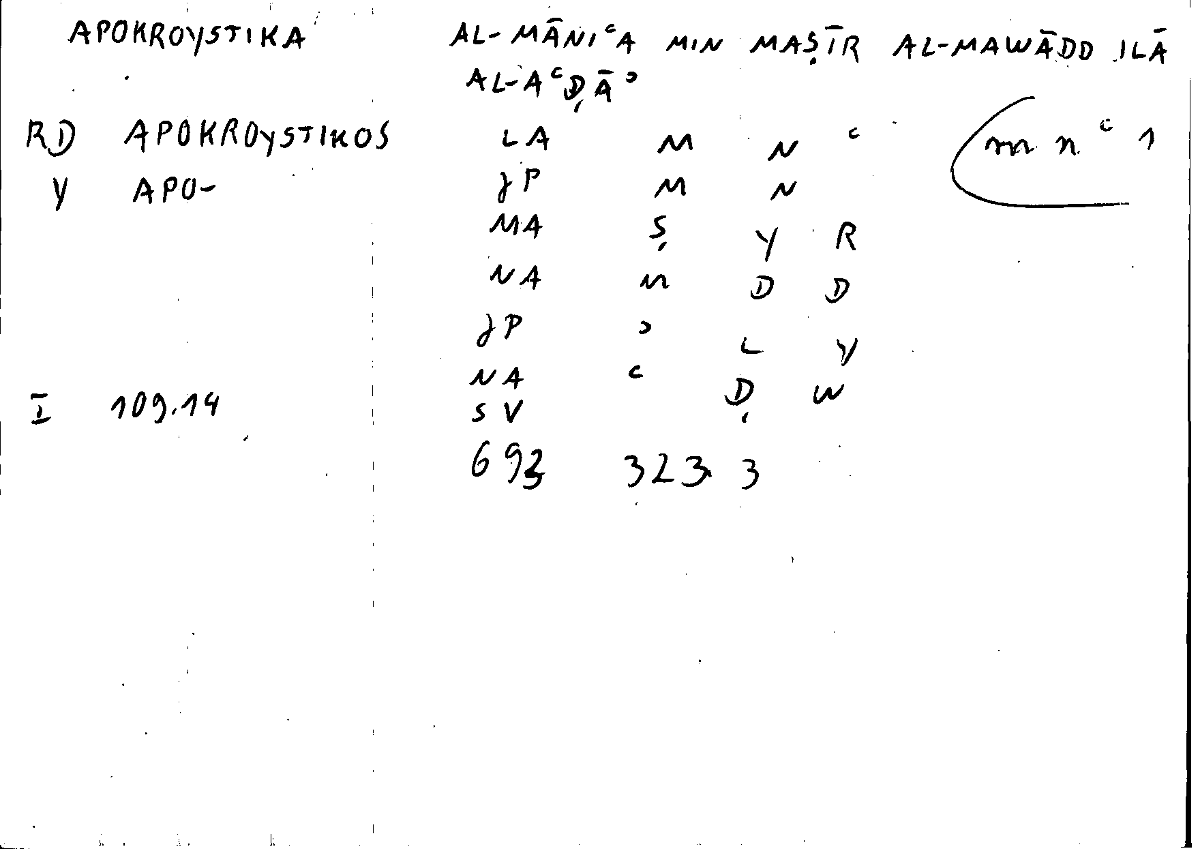 APOKROYSTIKA AL-MĀNIᶜA MIN MAṢĪR AL-MAWĀDD ILĀ
AL-AᶜḌĀʾ
RD APOKROYSTIKOS LA M N ᶜ m n ᶜ 1
Y APO- JP M N
MA Ṣ Y R
NA M D D
JP ʾ L Y
NA ᶜ Ḍ W
I 109.14 SV
693 323 3